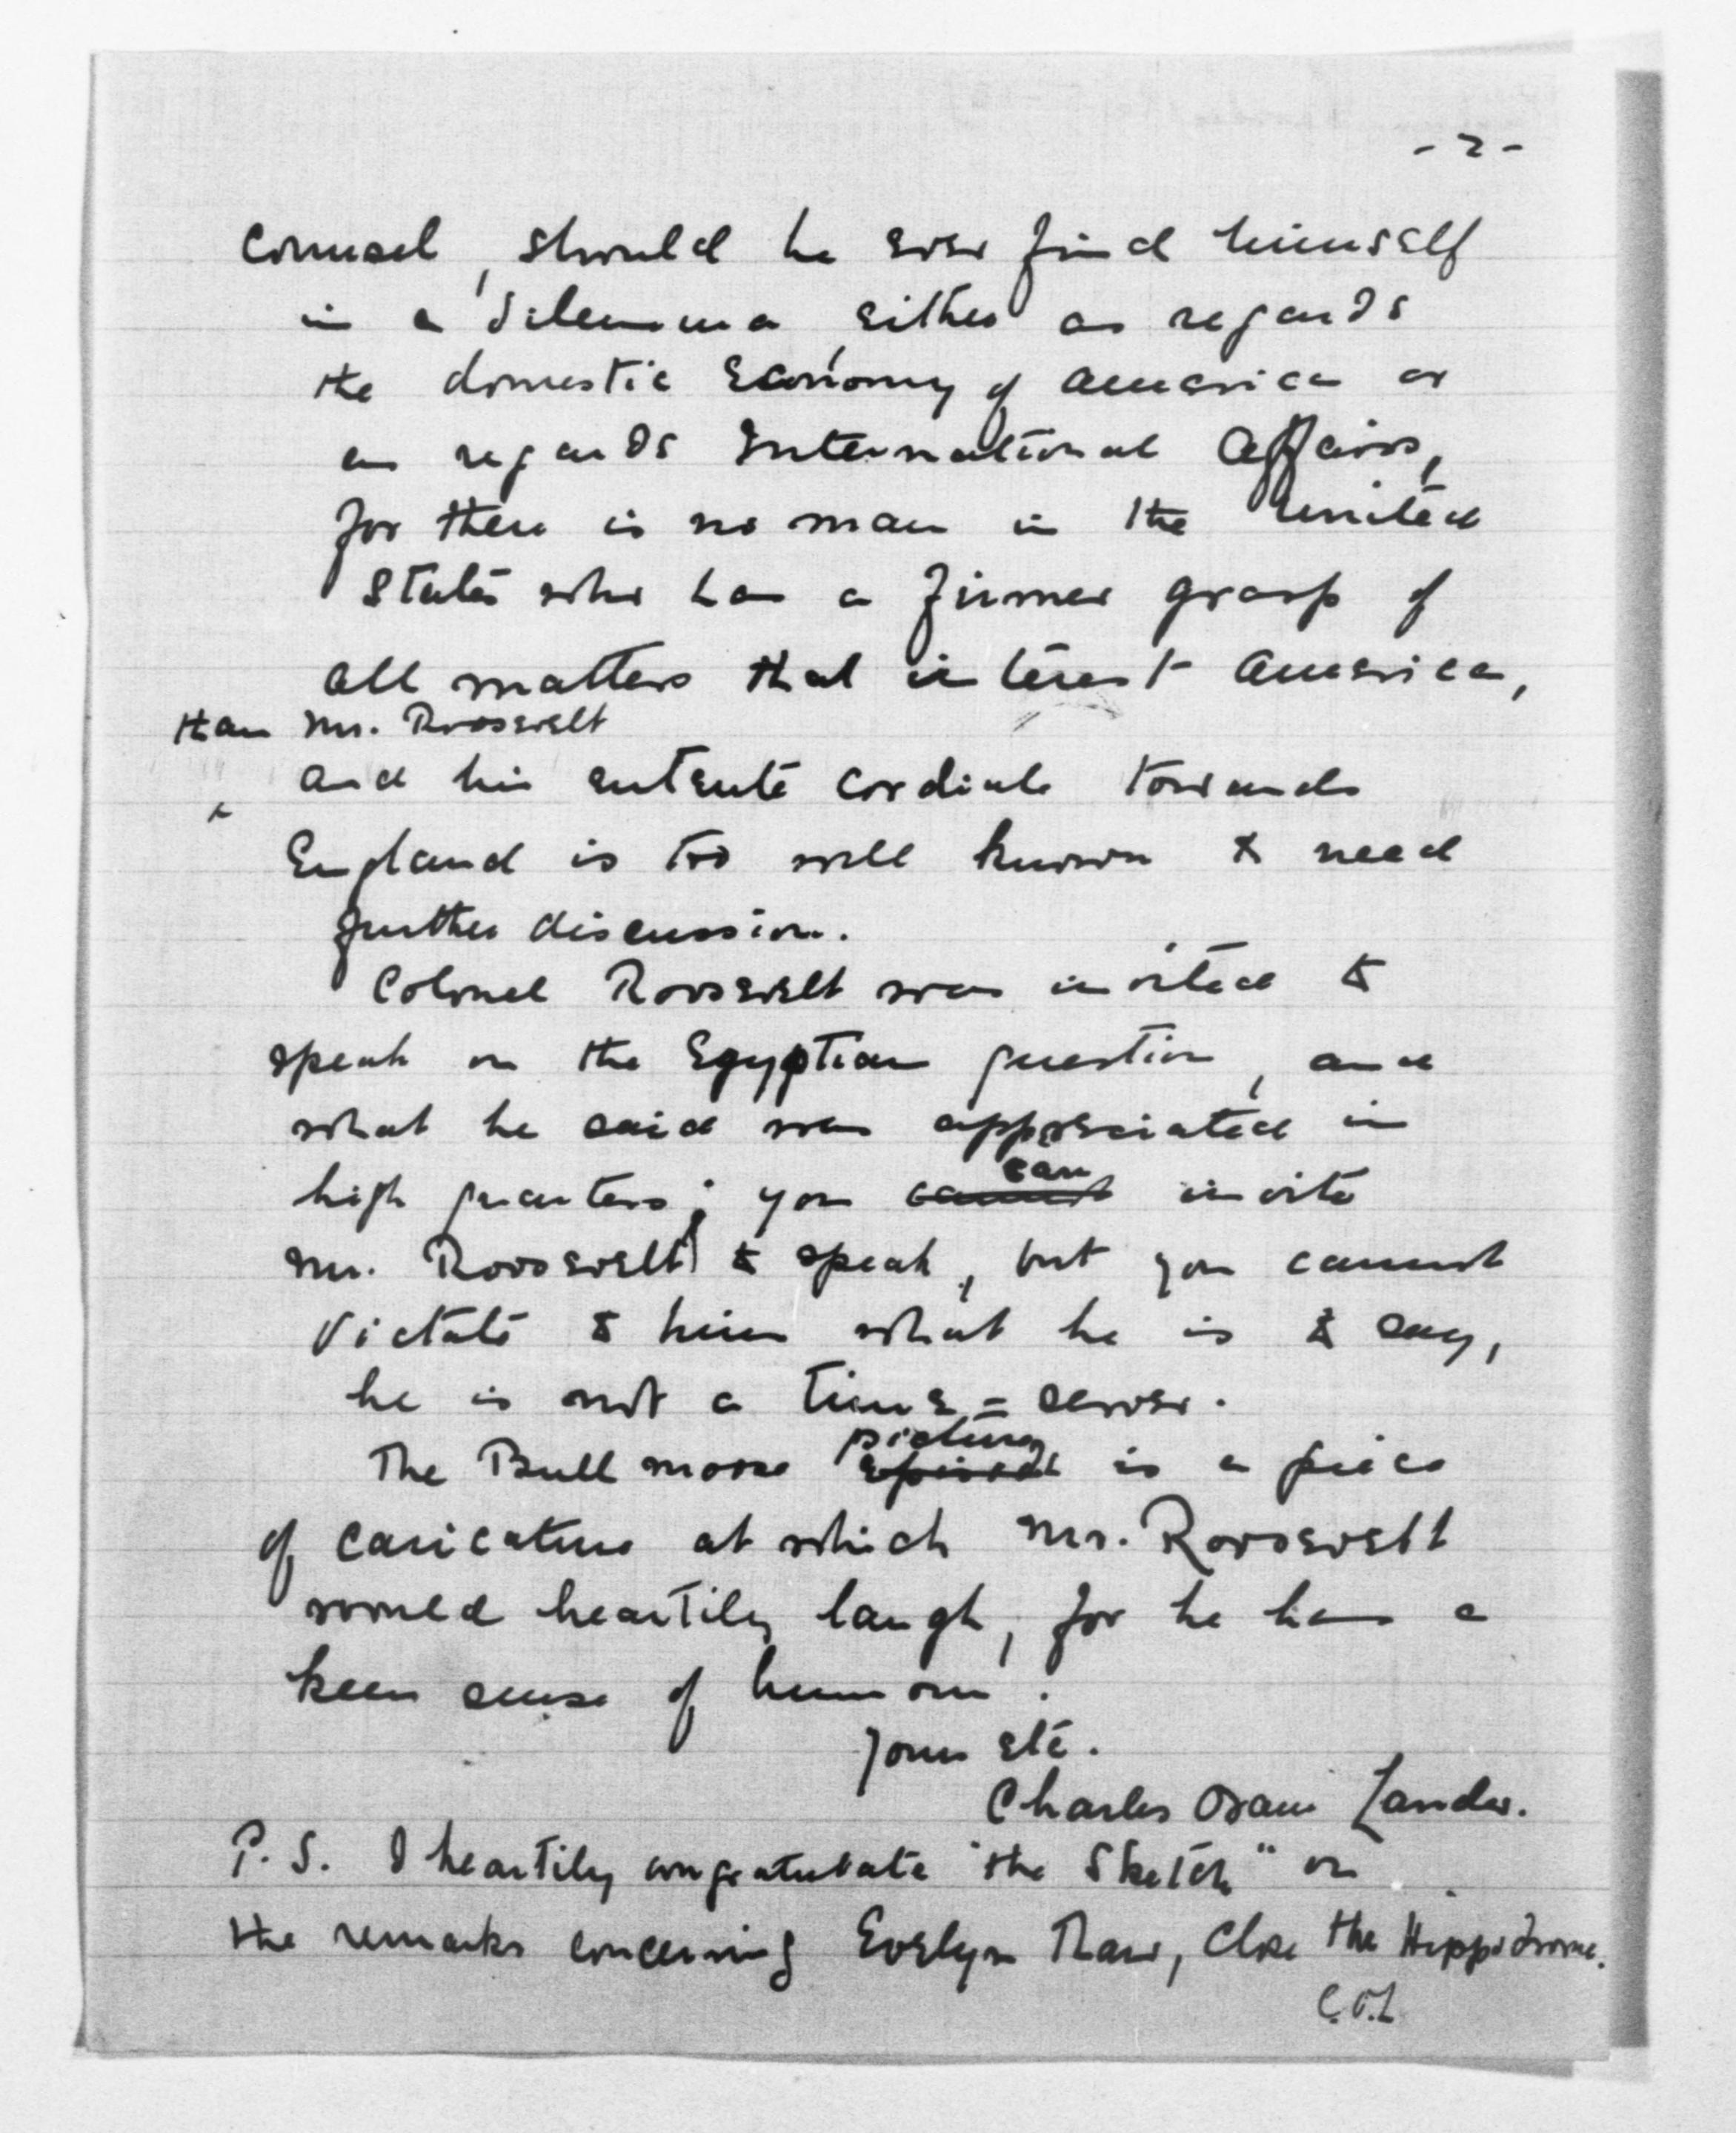 - 2 -
Counsel, should he ever find himself
in a dilemma, either as regards
the domestic Economy of America or
as regards International Affairs,
for there is no man in the United
States who has a firmer grasp of
all matters that interest America,
than Mr. Roosevelt
and his entente cordiale towards
England is too well known to need
further discussion.
Colonel Roosevelt was invited to
speak on the Egyptian question, and
what he said was appreciated in
can
high quarters; you cannot invite
Mr. Roosevelt to speak, but you cannot
dictate to him what he is to say,
he is not a time=server.
picture
The Bull moose episode is a piece
of caricature at which Mr. Roosevelt
would heartily laugh, for he has a
keen sense of humour.
Yours etc.
Charles Lander.
P.S. I heartily congratulate "the Sketch" on
the remarks concerning Evelyn Thaw, Close the Hippodrome.
C.O.L